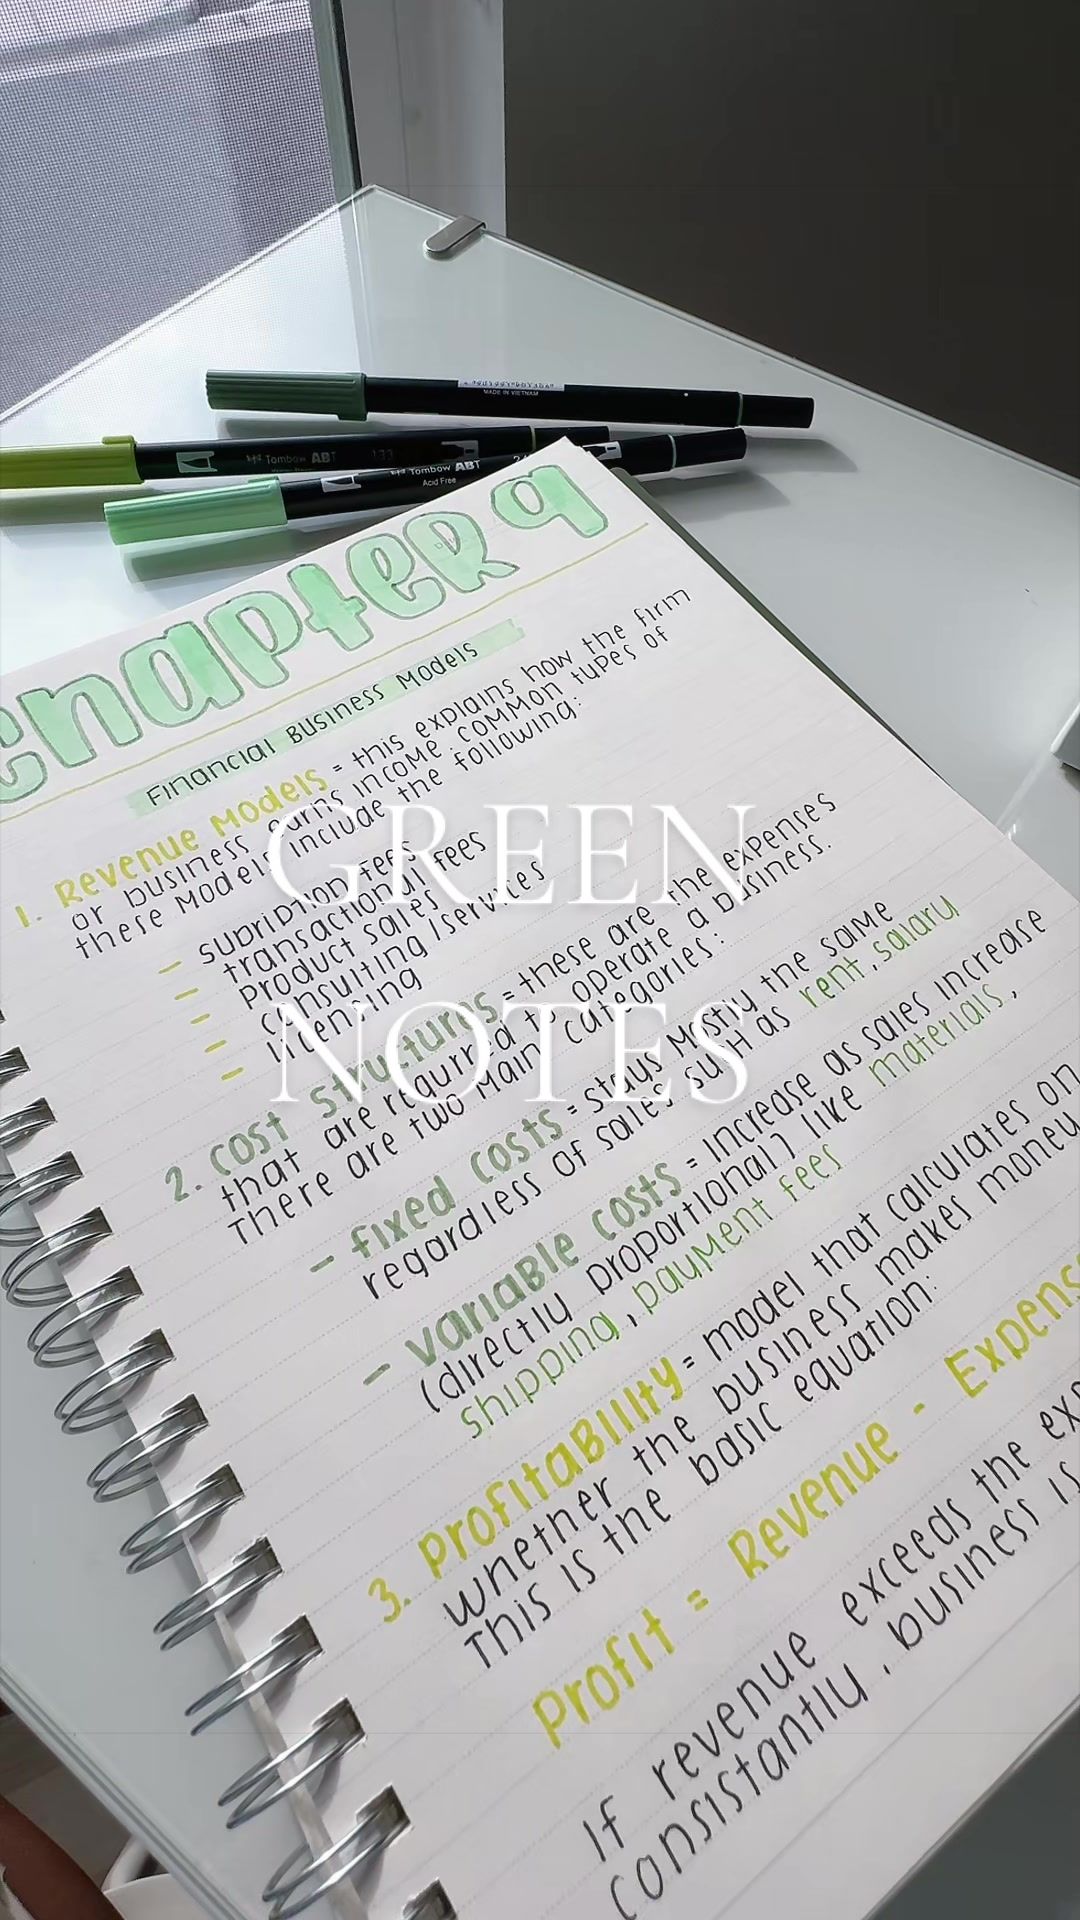 MADE IN VIETNAM
Tombow ABT 133
Tombow ABT
Acid Free
Chapter 9
Financial Business Models
1. Revenue Models = this explains how the firm
or business earns income common types of
these models include the following:
- subription fees
- transactional fees
- product sales
- consulting/services
- licensing
GREEN
NOTES
2. Cost structures = these are the expenses
that are requrred to operate a business.
There are two main categories:
- fixed costs = stays mostly the same
regardless of sales such as rent, salary
- variable costs = increase as sales increase
(directly proportional) like materials,
shipping, payment fees
3. Profitability = model that calculates on
whether the business makes money
This is the basic equation:
Profit = Revenue - Expens
If revenue exceeds the exp
consistantly, business is